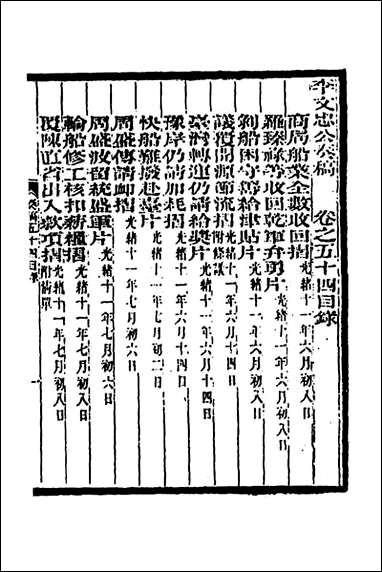 李文忠公奏稿 卷之五十四目錄
商局船棧全數收回摺 光緒十一年六月初八日
羅臻祿等收回乾軍弁勇片 光緒十一年六月初八日
剝船困苦籌給津貼片 光緒十一年六月初八日
議覆開源節流摺 附條議 光緒十一年六月十四日
臺灣轉運仍請給獎片 光緒十一年六月十四日
豫岸仍請加耗摺 光緒十一年六月十四日
快船難撥赴臺片 光緒十一年七月初二日
周盛傳請卹摺 光緒十一年七月初六日
周盛波留統盛軍片 光緒十一年七月初六日
輪船修工核扣薪糧摺 光緒十一年七月初八日
覆陳直省出入款項摺 附清單 光緒十一年七月初八日
奏稿五十四目錄
一